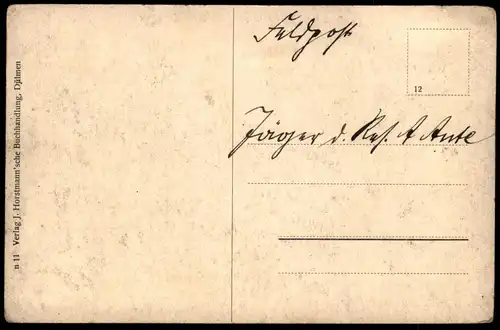 Feldpost
12
Jäger d. Res. A. Ante
n 11 Verlag J. Horstmann'sche Buchhandlung, Dülmen